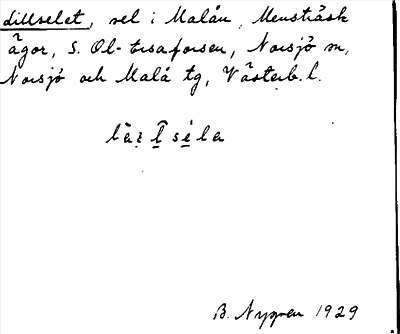 dillselet, sel i Malån, Mensträsk
ägor, S. Ol-ersaforsen, Norsjö sn,
Norsjö och Malå tg, Västerb. l.
B. Nygren 1929